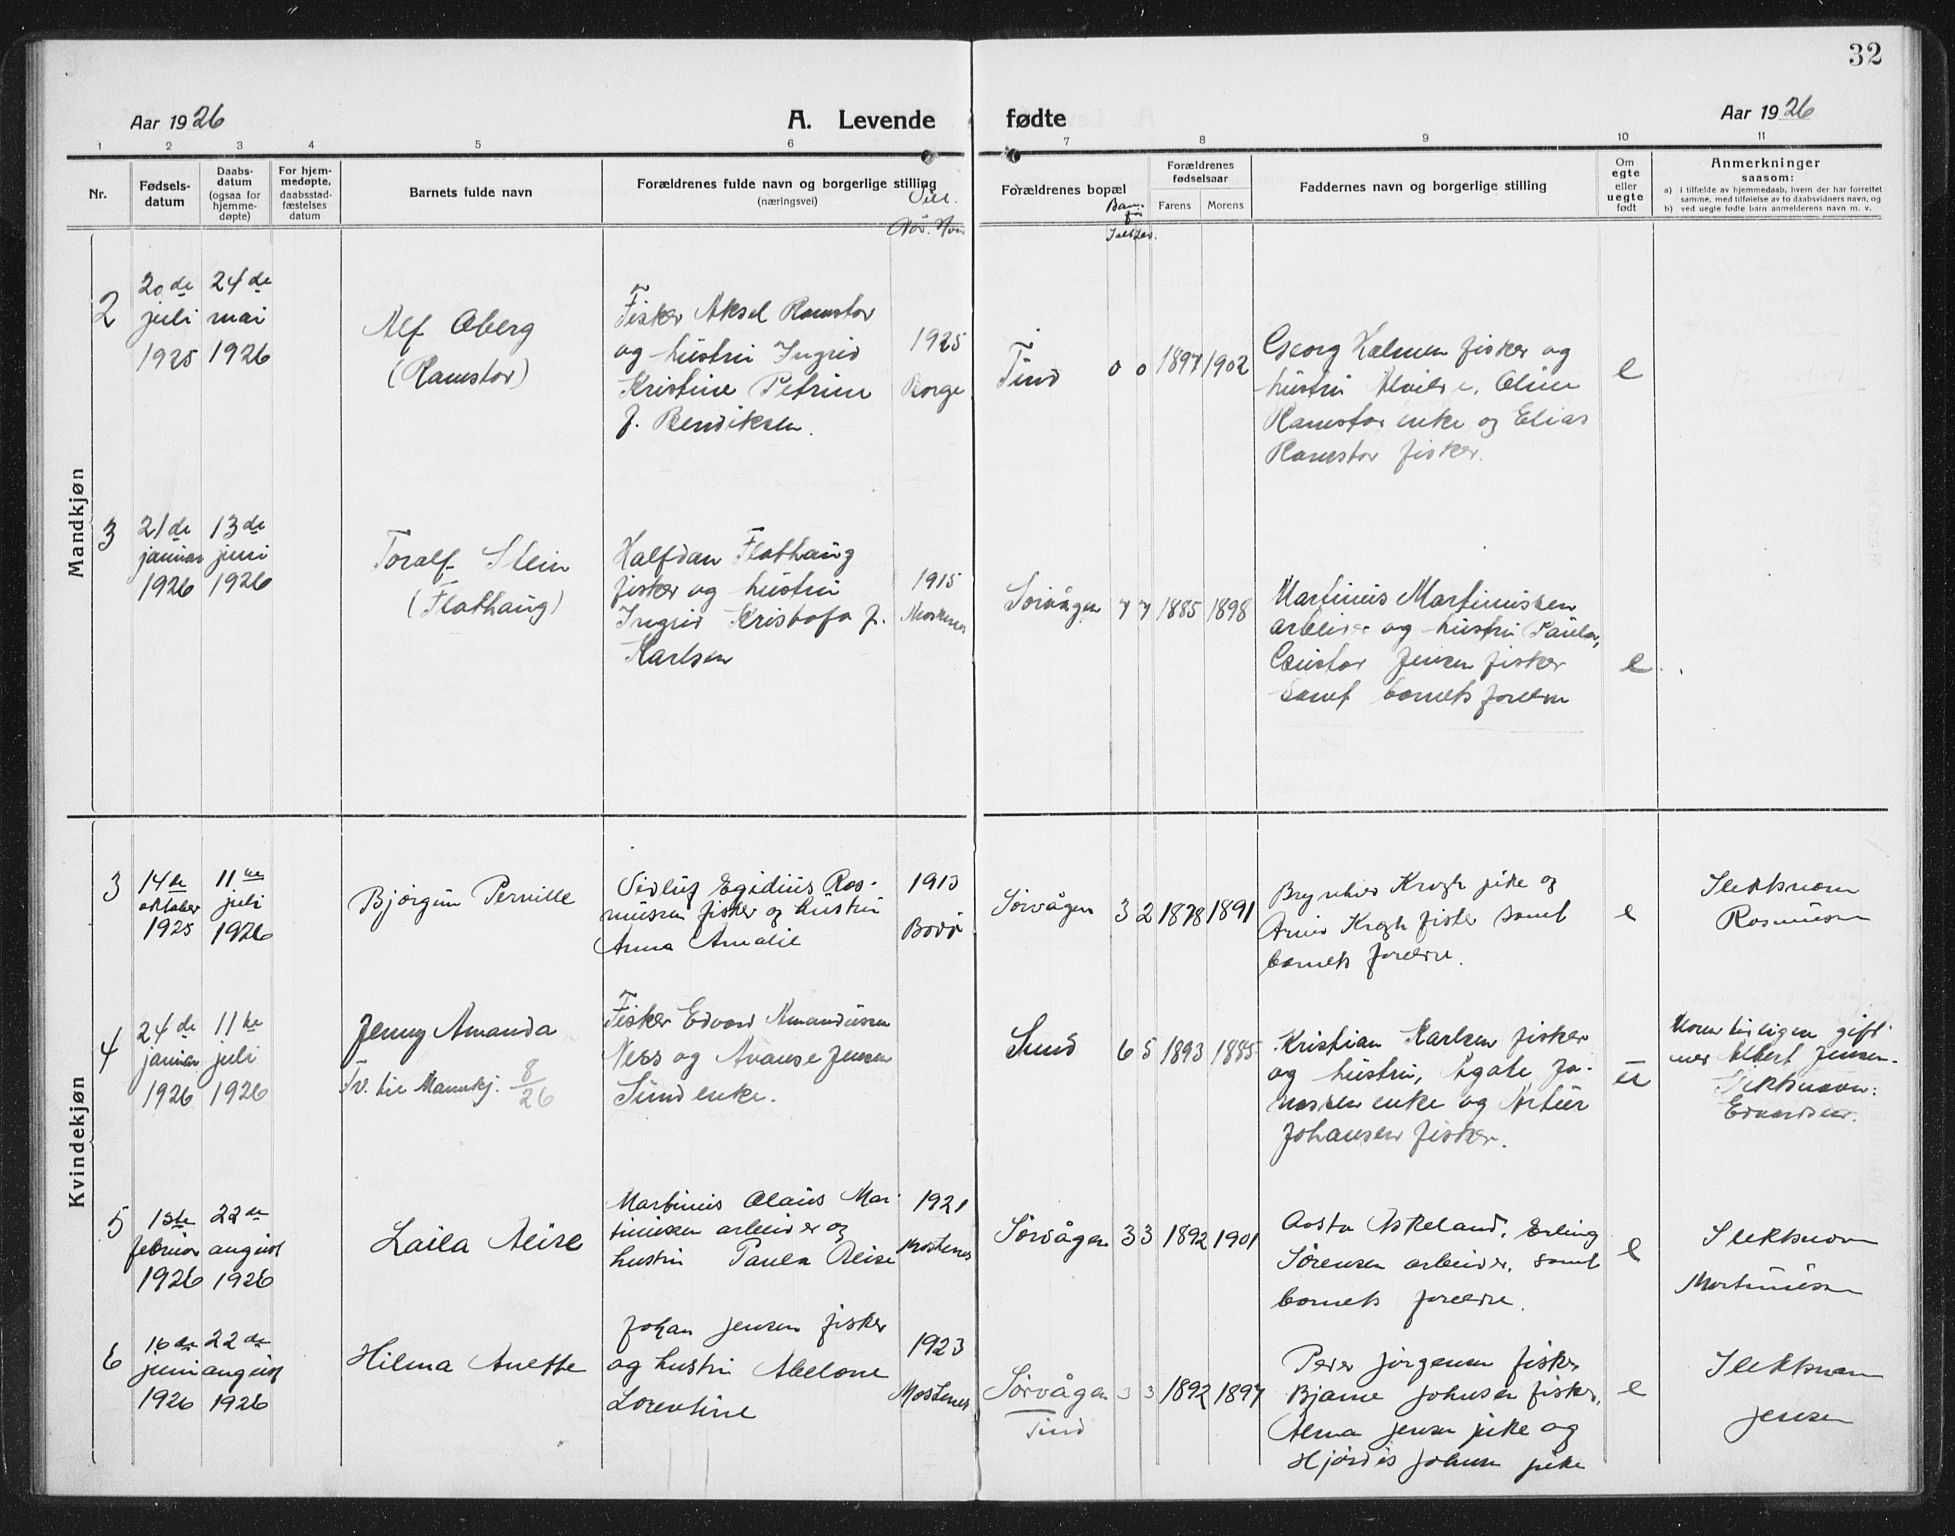 32
Aar 1926
A. Levende fødte
Aar 1926
1 2 3 4 5 6 7 8 9 10 11
Nr.
Fødsels-
datum
Daabs-
datum
(ogsaa for
hjemme-
døpte)
For hjem-
medøpte,
daabsstad-
fæstelses
datum
Barnets fulde navn
Forældrenes fulde navn og borgerlige stilling
(næringsvei)
Forældrenes bopæl
Forældrenes
fødselsaar
Farens Morens
Faddernes navn og borgerlige stilling
Om
egte
eller
uegte
født
Anmerkninger
saasom:
a) i tilfælde av hjemmedaab, hvem der har forrettet
samme, med tilføielse av to daabsvidners navn, og
b) ved uegte fødte barn anmelderens navn m. v.
Mandkjøn
2
20de
juli
1925
24de
mai
1926
Alf Oberg
(Ramstor)
Fisker Aksel Ramstor
og hustru Ingrid
Kristine Petrine
f. Bendiksen.
1925
Borge
Tind
0 0 1897 1902
Georg Halmen fisker og
hustru Alvilde, Oline
Ramstor enke og Elias
Ramstor fisker.
e
3
21de
januar
1926
13de
juni
1926
Toralf Stein
(Flathaug)
Halfdan Flathaug
fisker og hustru
Ingrid Kristofa f.
Karlsen
1915
Moskenes
Sørvågen
7 7 1885 1898
Martinus Martinussen
arbeider og hustru Paula,
Jensen fisker
samt barnets foreldre
e
Kvindekjøn
3
14de
oktober
1925
11te
juli
1926
Bjørgun Pernille
Sidluf Egidius Ras-
mussen fisker og hustru
Anna Amalie
1913
Bodø
Sørvågen
3 2 1878 1891
Brynhild Krogh pike og
Arne Krogh fisker samt
barnets foreldre.
e
Slektsnavn
Rasmussen
4
24de
januar
1926
11te
juli
1926
Jenny Amanda
Tv. til Mannkj. 8/26
Fisker Edvard Amandussen
Ness og Avanse Jensen
Sund enke.
Sund
6 5 1893 1885
Kristian Karlsen fisker
og hustru, Agate Jo-
nassen enke og Artur
Johansen fisker.
u
Moren tidligere gift
med Albert Jensen.
Slektsnavn:
Edvardsen.
5
1ste
februar
1926
22de
august
1926
Laila Alise
Martinus Olaus Mar-
tinussen arbeider og
hustru Paula Alise
1921
Moskenes
Sørvågen
3 3 1892 1901
Aasta Askeland, Erling
Sørensen arbeider, samt
barnets foreldre.
e
Slektsnavn
Martinussen
6
16de
juni
1926
22de
august
1926
Hilma Anette
Johan Jensen fisker
og hustru Abelone
Lorentine
1923
Moskenes
Sørvågen
Tind
3 3 1892 1897
Peder Jørgensen fisker
Bjarne Johnsen fisker,
Alma Jensen pike og
Hjørdis Johnsen pike
e
Slektsnavn
Jensen